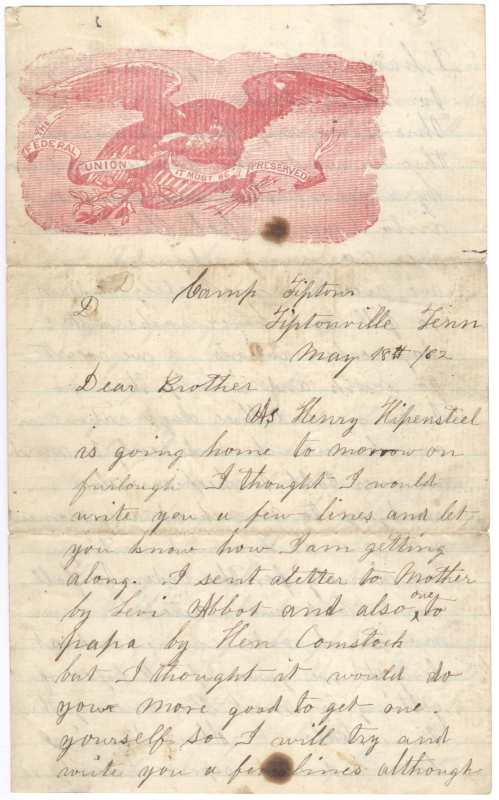 THE
FEDERAL
UNION
IT MUST BE
PRESERVED
D D
Camp Tipton
Tiptonville Tenn
May 18th /62
Dear Brother
As Henry Hipensteel
is going home to morrow on
furlough I thought I would
write you a few lines and let
you know how I am getting
along. I sent a letter to Mother
by Levi Abbot and also one to
papa by Hen Comstock
but I thought it would do
you more good to get one
yourself so I will try and
write you a few lines although